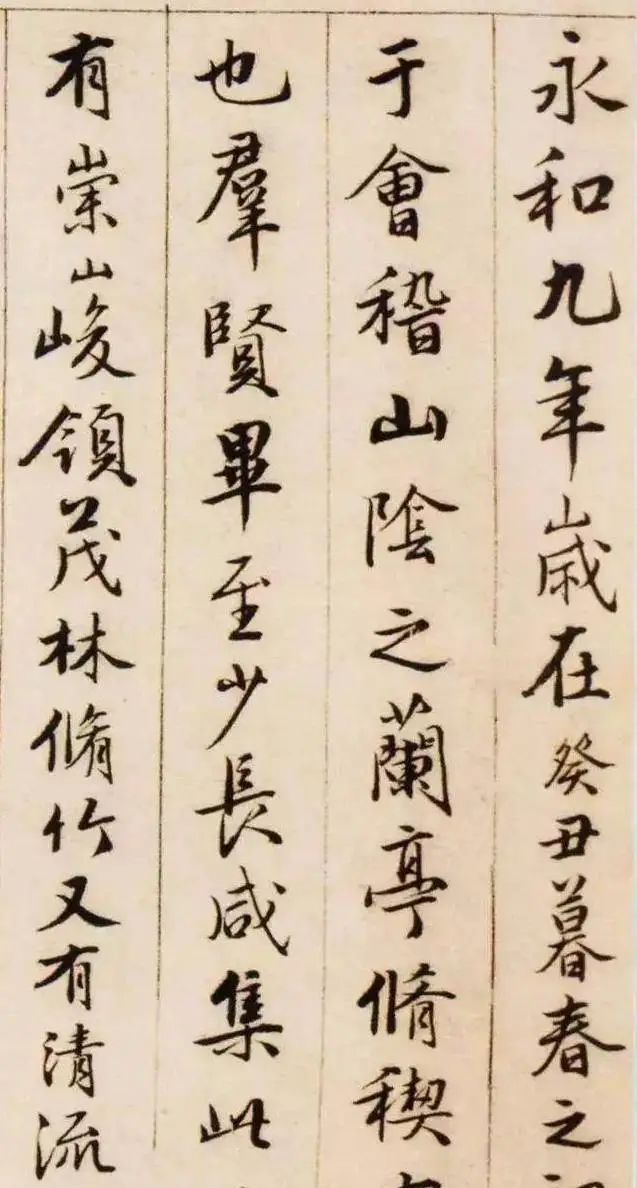 永和九年歲在癸丑暮春之
于會稽山陰之蘭亭脩稧
也羣賢畢至少長咸集此
有崇山峻領茂林脩竹又有清流